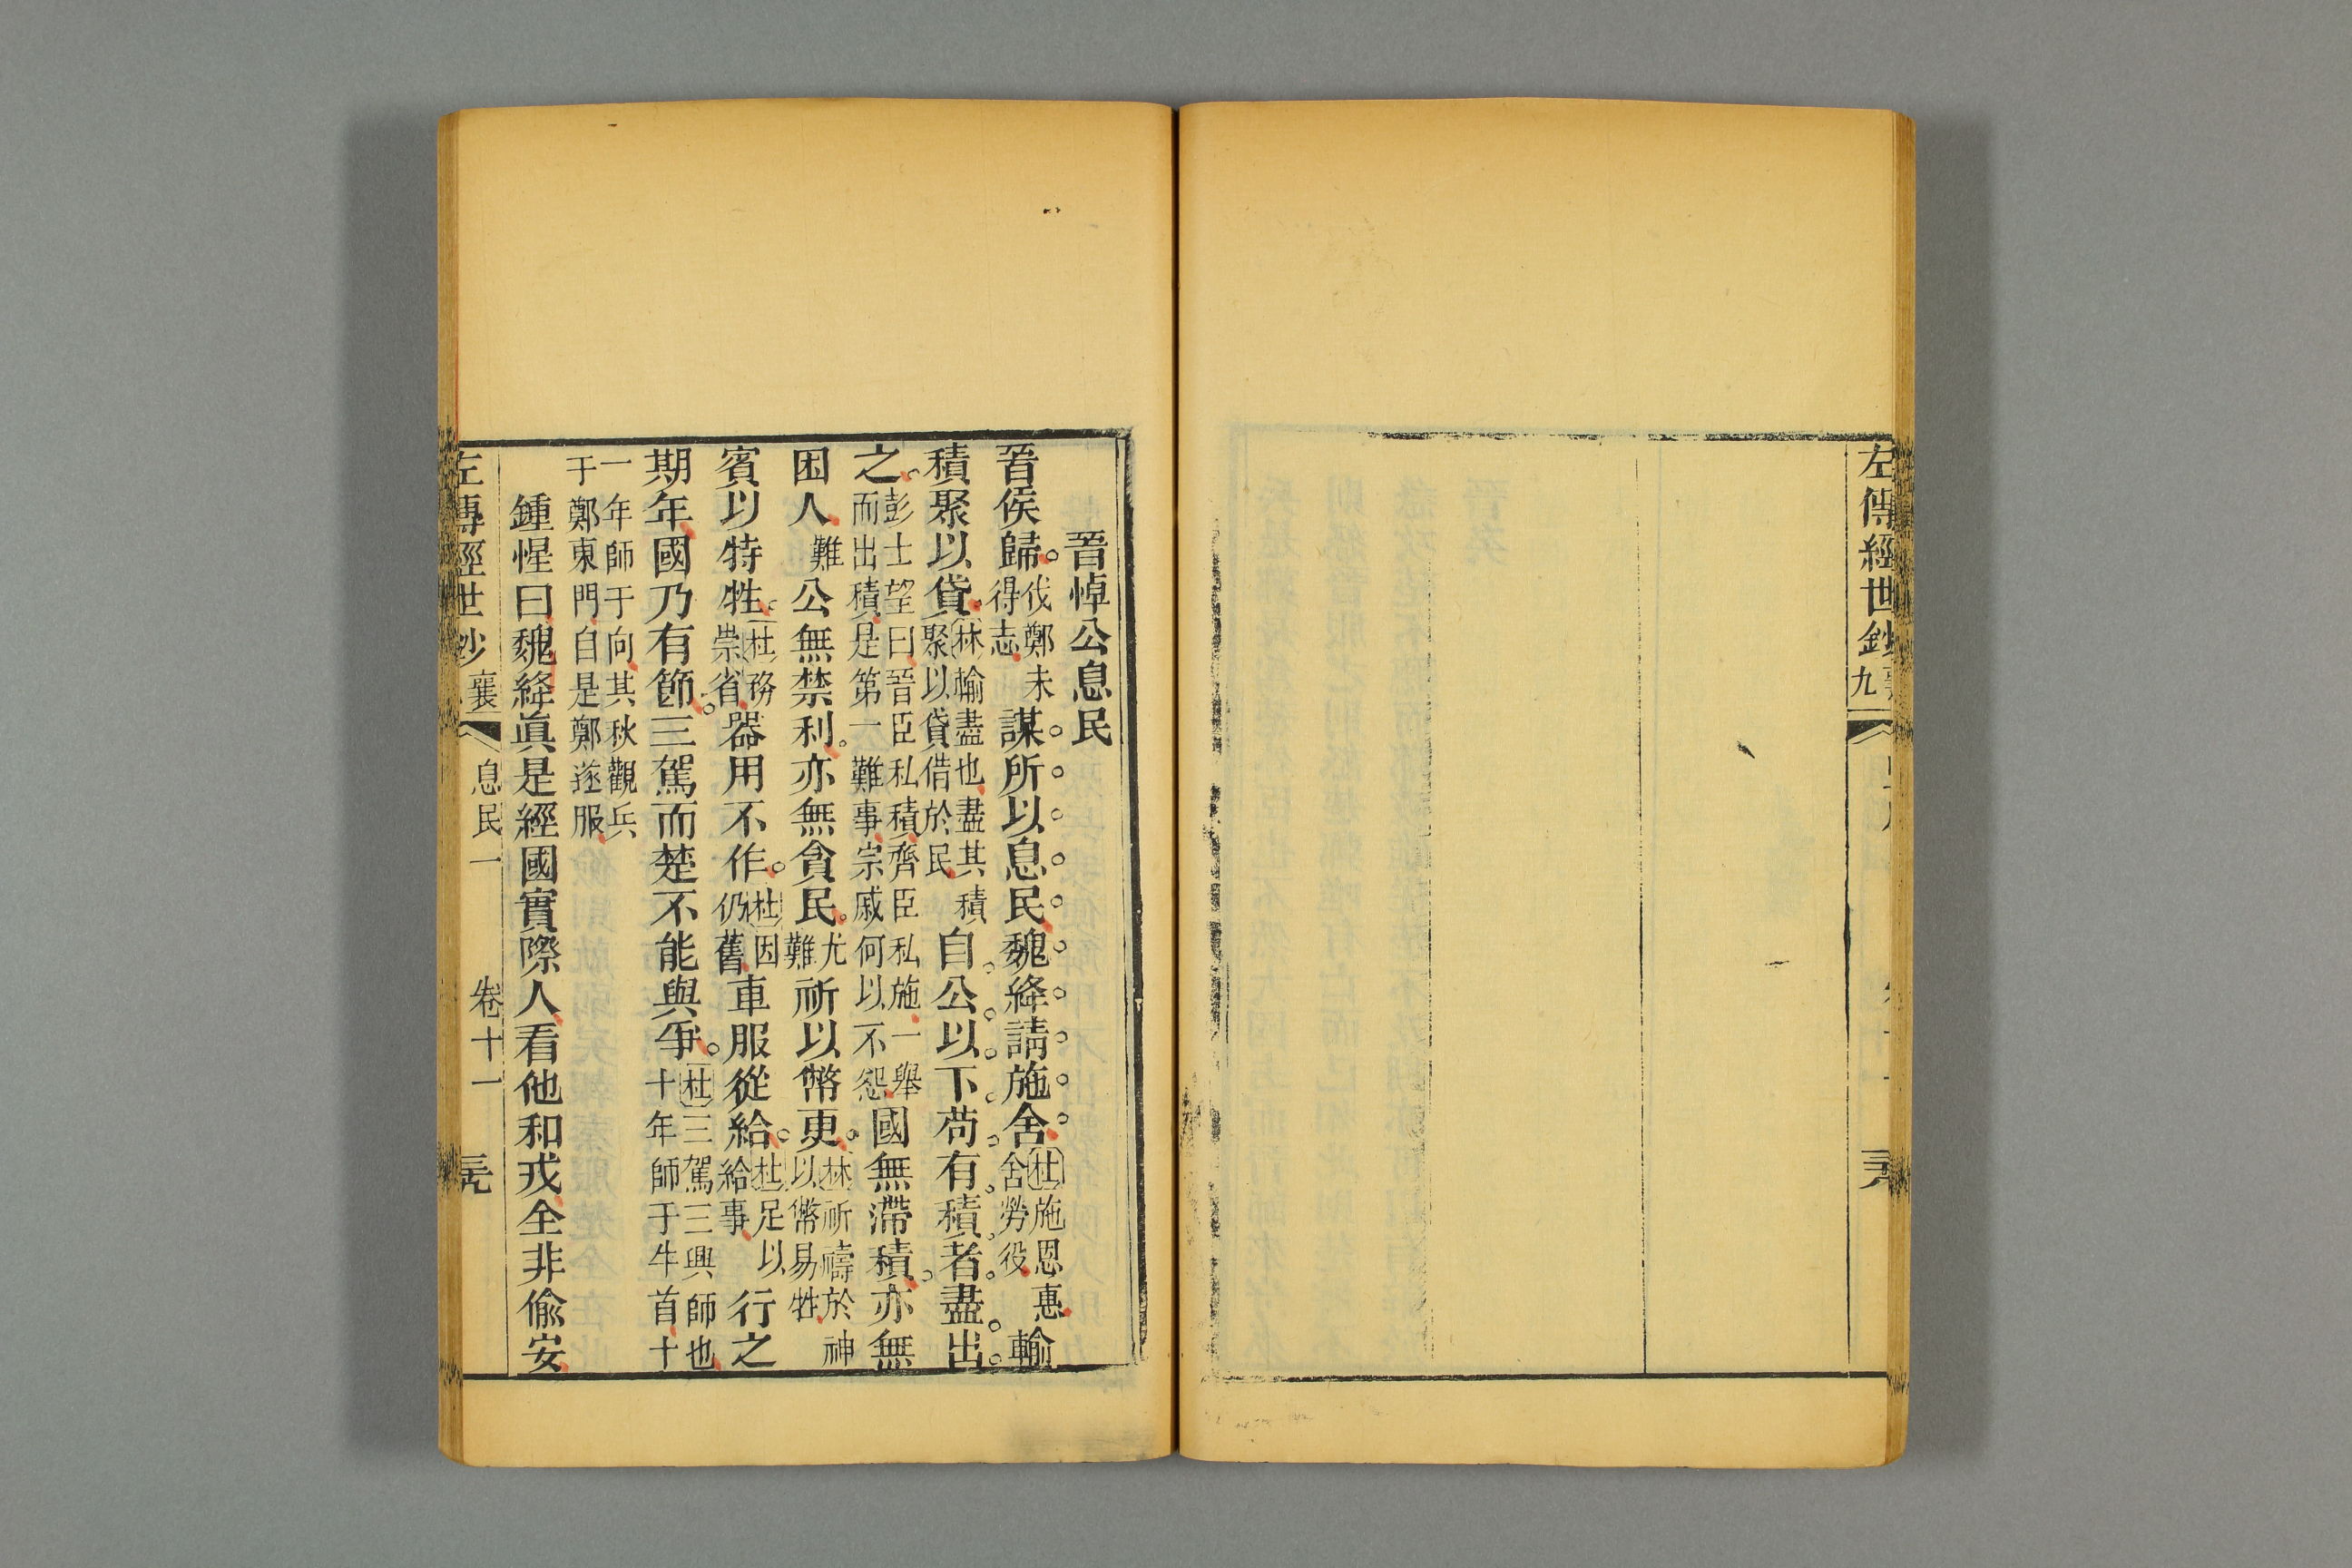 左傳經世鈔
九
晉悼公息民
晉侯歸伐鄭未得志謀所以息民魏絳請施舍杜施恩惠舍勞役輸
積聚以貸林輸盡也盡其積聚以貸借於民自公以下苟有積者盡出
之彭士望曰晉臣私積齊臣私施一舉而出積是第一難事宗戚何以不怨國無滯積亦無
困人難公無禁利亦無貪民尤難祈以幣更林祈禱於神以幣易牲
賓以特牲杜務崇省器用不作杜因仍舊車服從給杜足以給事行之
期年國乃有節三駕而楚不能與爭杜三駕三興師也十年師于牛首十
一年師于向其秋觀兵于鄭東門自是鄭遂服
鍾惺曰魏絳眞是經國實際人看他和戎全非偷安
左傳經世鈔 襄 息民一 卷十一